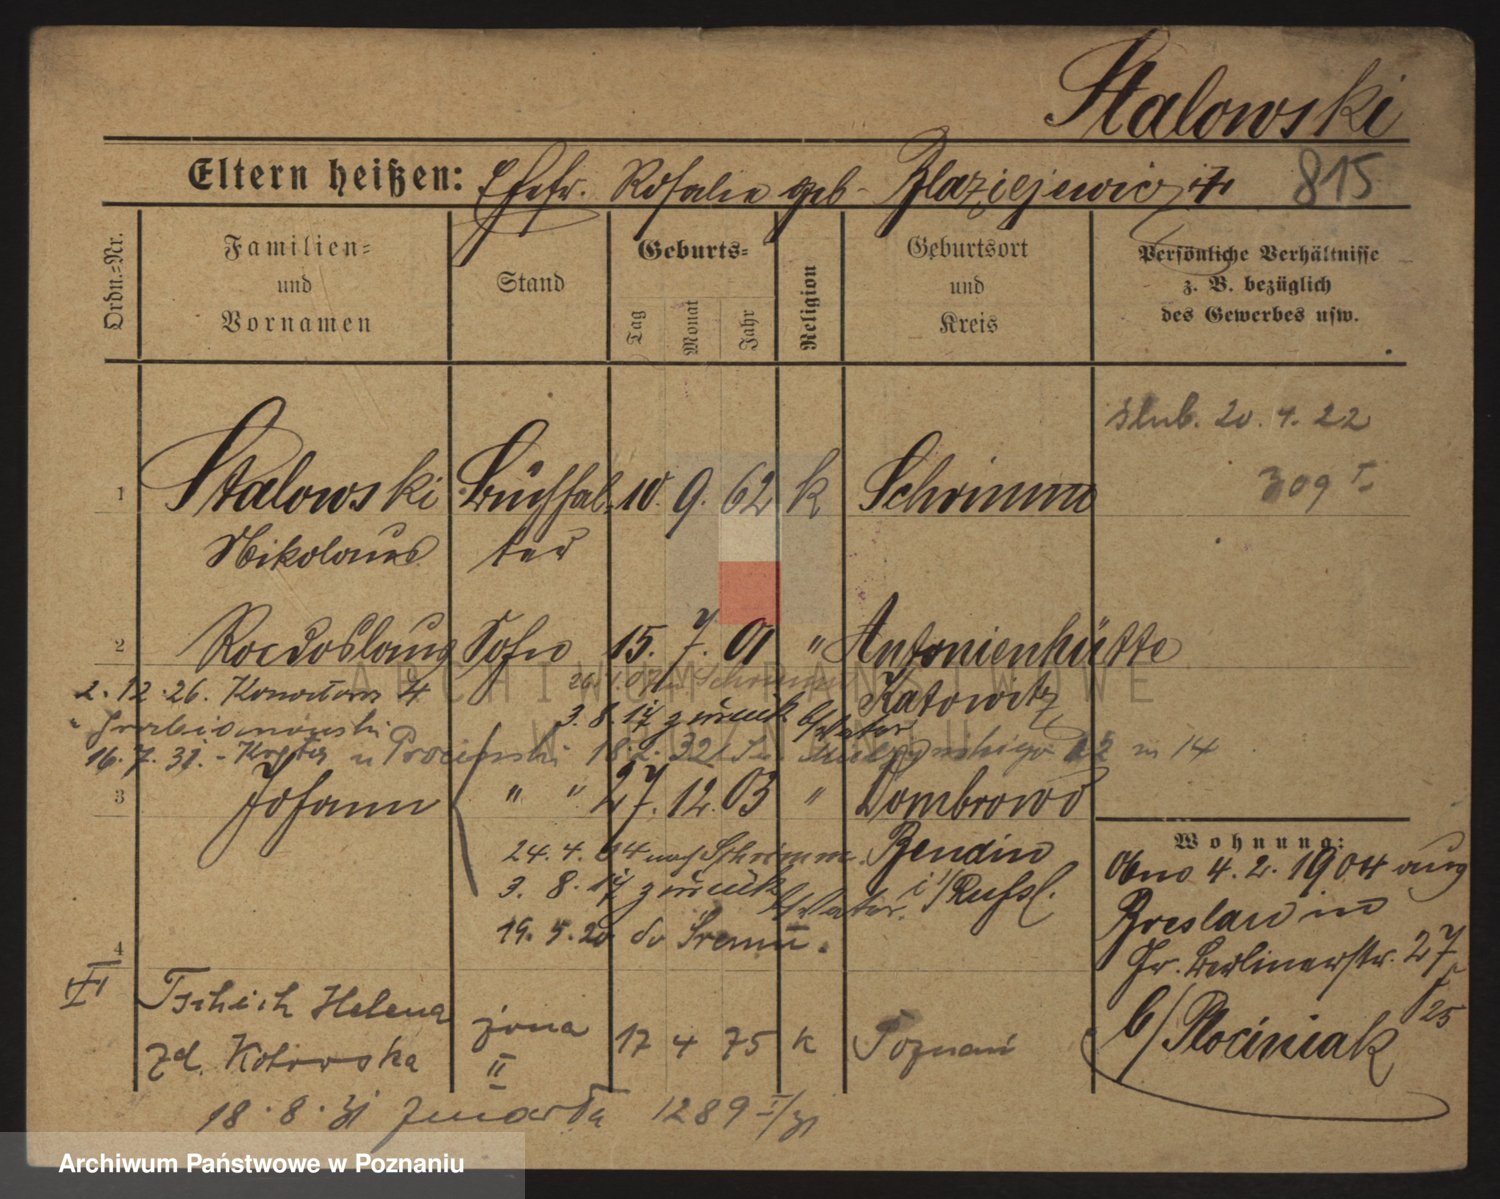 Stalowski
Eltern heißen: Ehefr. Rosalie geb. Blaziejewicz †
815
Ordn.=Nr.
Familien=
und
Vornamen
Stand
Geburts=
Tag
Monat
Jahr
Religion
Geburtsort
und
Kreis
Persönliche Verhältnisse
z. B. bezüglich
des Gewerbes usw.
ślub. 20. 4. 22
309 I
1 Stalowski Buchhal= 10. 9. 62 k Schrimm
Nikolaus ter
2 Sohn 15. 7. 01 " Antonienhütte
2. 12. 26. 4 Schrimm Katowitz
3. 8. 17 zurück b/Vater
16. 7. 31. 18. 2. 32 22 m 14
3 Johann " " 27. 12. 03 " Dombrowo
24. 4. 04 nach Schrimm. Bendin
3. 8. 17 zurück b/Vater. i/Russl.
19. 5. 20 do Śremu.
Wohnung:
4. 2. 1904 aus
Breslau in
Gr. Berlinerstr. 27
b/Plociniak
4
II Tschich Helena żona 17 4 75 k Poznań
zd. Kotowska II
18. 8. 31 zmarła 1289 I/31
ARCHIWUM PAŃSTWOWE
W POZNANIU
Archiwum Państwowe w Poznaniu